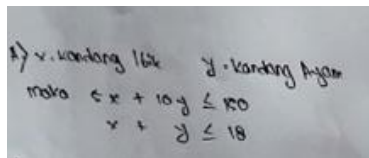 A) x. kandang Itik y. kandang Ayam
maka 5x + 10y ≤ 150
x + y ≤ 18